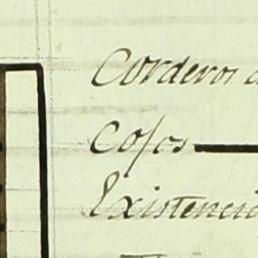 Corderos
Cojos
Existencia